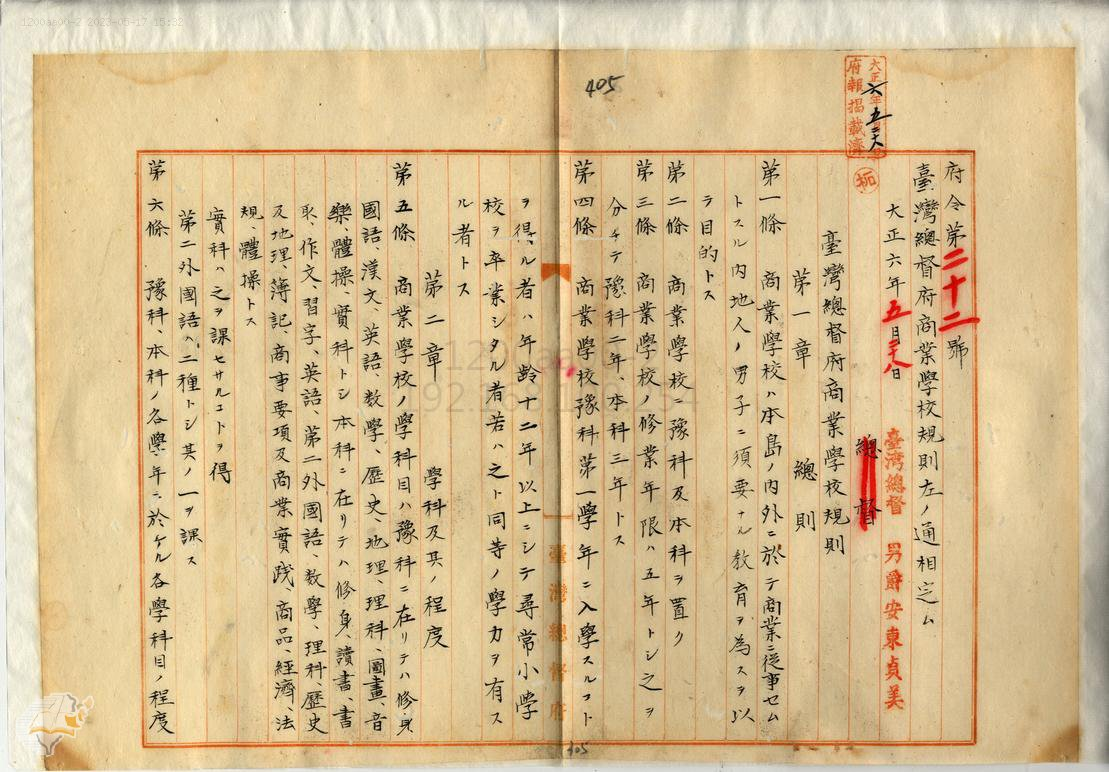 1200aa00-2 2023-05-17 15:32
405
大正六年五月二十八日
府報掲載濟
府令第二十二號
臺灣總督府商業學校規則左ノ通相定ム
大正六年五月二十八日
臺灣總督 男爵安東貞美
總督
臺灣總督府商業學校規則
第一章 總則
第一條 商業學校ハ本島ノ内外ニ於テ商業ニ從事セム
トスル内地人ノ男子ニ須要ナル教育ヲ為スヲ以
テ目的トス
第二條 商業學校ニ豫科及本科ヲ置ク
第三條 商業學校ノ修業年限ハ五年トシ之ヲ
分チテ豫科二年、本科三年トス
第四條 商業學校豫科第一學年ニ入學スルコト
ヲ得ル者ハ年齡十二年以上ニシテ尋常小學
校ヲ卒業シタル者若ハ之ト同等ノ學力ヲ有ス
ル者トス
第二章 學科及其ノ程度
第五條 商業學校ノ學科目ハ豫科ニ在リテハ修身、
國語、漢文、英語、数學、歷史、地理、理科、圖畫、音
樂、體操、實科トシ本科ニ在リテハ修身、讀書、書
取、作文、習字、英語、第二外國語、数學、理科、歷史
及地理、簿記、商事要項及商業實践、商品、經濟、法
規、體操トス
實科ハ之ヲ課セサルコトヲ得
第二外國語ハ二種トシ其ノ一ヲ課ス
第六條 豫科、本科ノ各學年ニ於ケル各學科目ノ程度
臺灣總督府
405